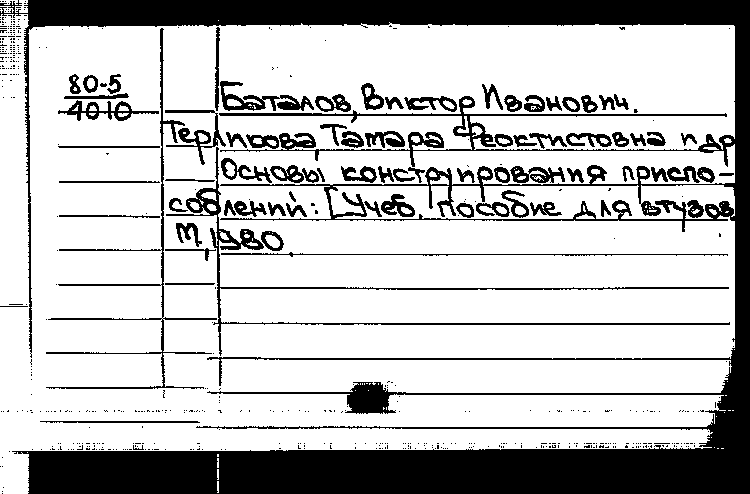 80-5
4010
Баталов, Виктор Иванович.
Тамара Феоктистовна и др
Основы конструирования приспо-
соблений: [Учеб. пособие для втузов.
М, 1980.